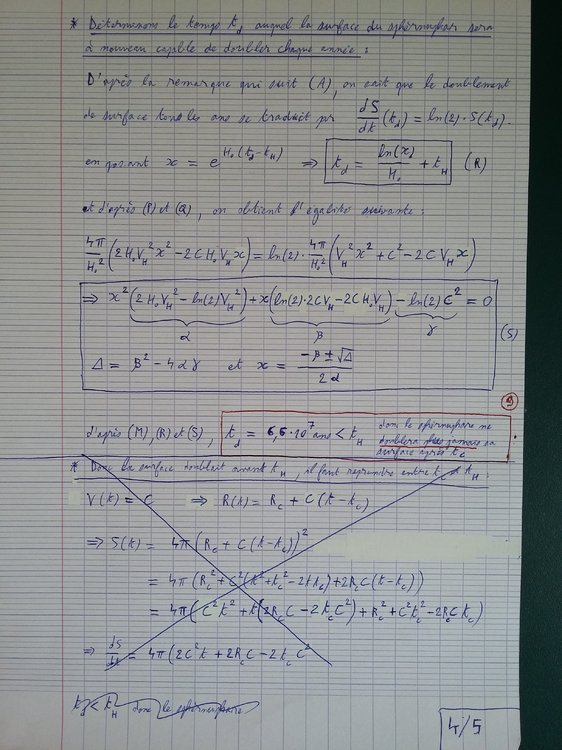 * Déterminons le temps t_d auquel la surface du sphérinophar sera
à nouveau capable de doubler chaque année :
D'après la remarque qui suit (A), on sait que le doublement
de surface tous les ans se traduit pr dS/dt (t_d) = ln(2)·S(t_d).
en posant x = e^{H₀(t_d-t_H)} ⇒ t_d = ln(x)/H₀ + t_H (R)
et d'après (P) et (Q), on obtient l'égalité suivante :
4π/H₀² (2H₀V_H²x² - 2CH₀V_Hx) = ln(2)·4π/H₀² (V_H²x² + C² - 2CV_Hx)
⇒ x²(2H₀V_H² - ln(2)V_H²) + x(ln(2)·2CV_H - 2CH₀V_H) - ln(2)C² = 0
α β γ (S)
Δ = β² - 4αγ et x = (-β ± √Δ)/2α
9
d'après (M), (R) et (S), t_d = 6,6·10⁷ ans < t_H donc le sphérinophare ne
doublera plus jamais sa
surface après t_c
* Donc la surface doublait avant t_H, il faut reprendre entre t_c et t_H :
V(t) = C ⇒ R(t) = R_c + C(t-t_c)
⇒ S(t) = 4π(R_c + C(t-t_c))²
= 4π(R_c² + C²(t²+t_c²-2tt_c) + 2R_cC(t-t_c))
= 4π(C²t² + t(2R_cC - 2t_cC²) + R_c² + C²t_c² - 2R_cCt_c)
⇒ dS/dt = 4π(2C²t + 2R_cC - 2t_cC²
t_d < t_H donc le sphérinophare
4/5